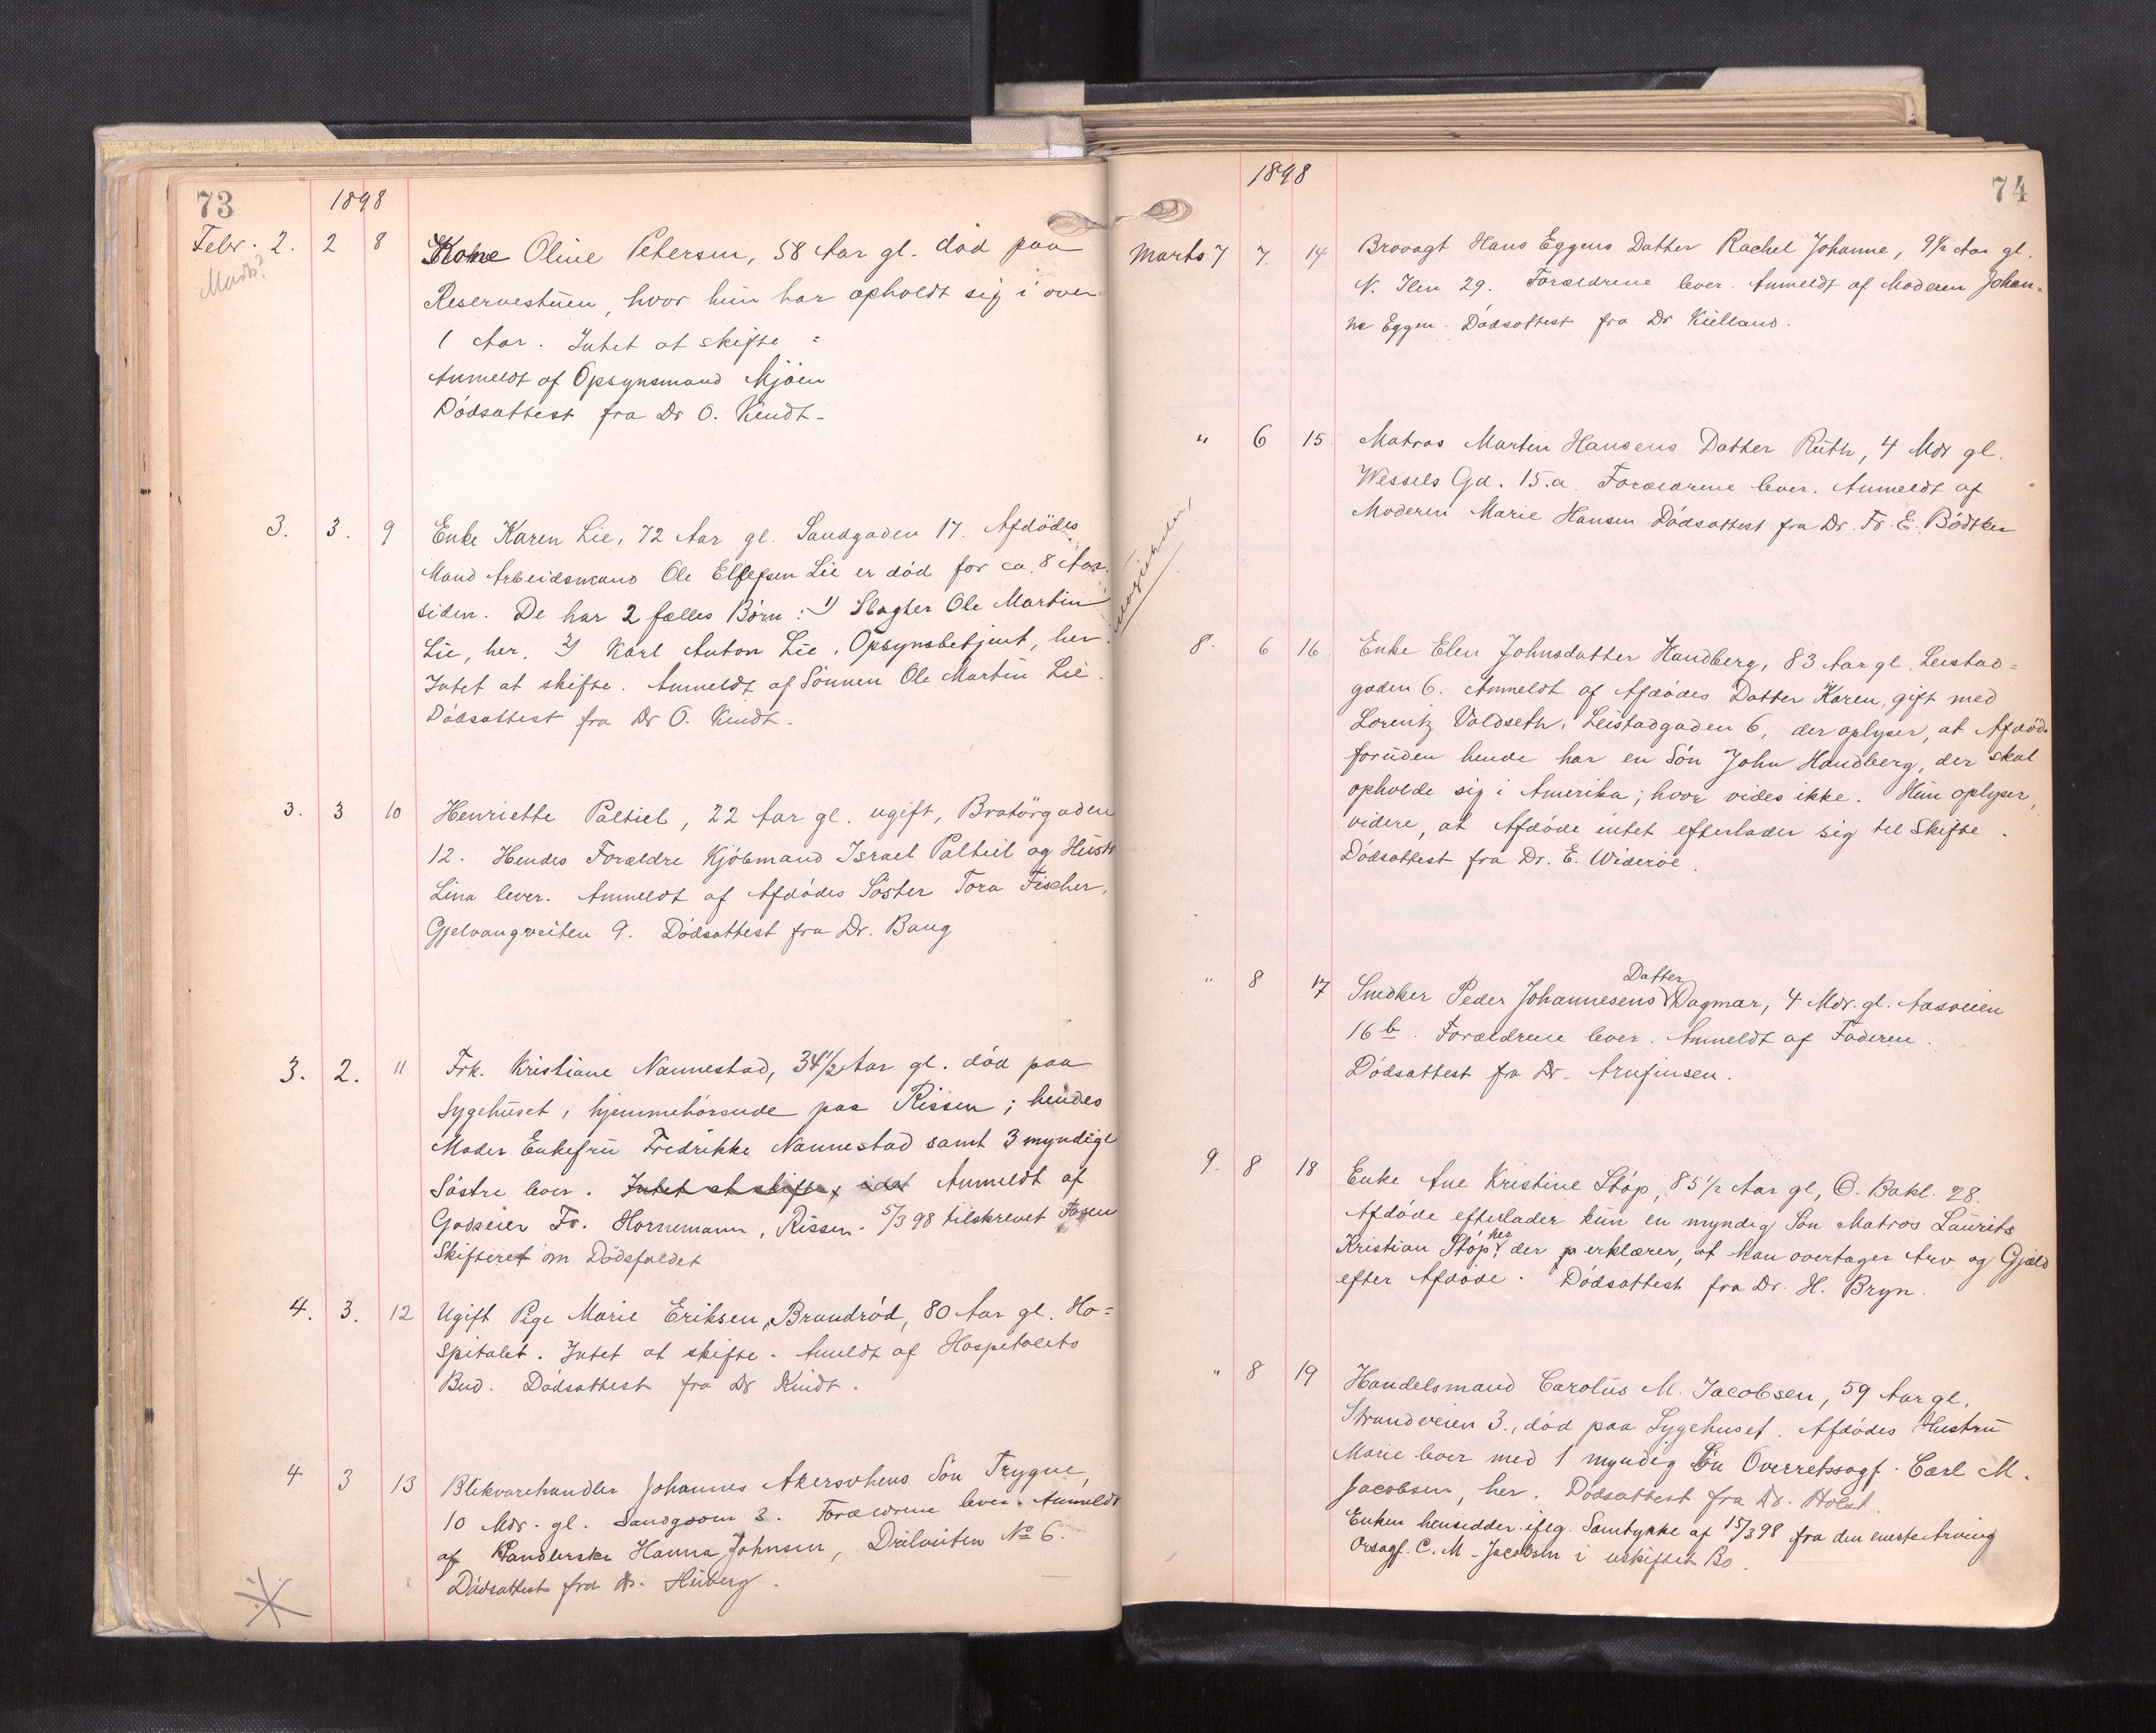 73 1898
Febr. 2. 2 8 Kone Oline Petersen, 58 Aar gl. död paa
Marts?
Reservestuen, hvor hun har opholdt sig i over
1 Aar. Intet at skifte
Anmeldt af Opsynsmand Mjöen
Dödsattest fra Dr O. Kindt.
3. 3. 9 Enke Karen Lie, 72 Aar gl. Sandgaden 17. Afdödes
Mand Arbeidsmand Ole Ellefsen Lie er död for ca. 8 Aar
siden. De har 2 fælles Börn: 1) Slagter Ole Martin
Lie, her, 2) Karl Anton Lie, Opsynsbetjent, her.
Intet at skifte. Anmeldt af Sönnen Ole Martin Lie.
Dödsattest fra Dr O. Kindt.
3. 3 10 Henriette Paltiel, 22 Aar gl. ugift, Bratörgaden
12. Hendes Forældre Kjöbmand Israel Paltiel og Hustr
Lina lever. Anmeldt af Afdödes Söster Tora Fischer,
Gjelvangveiten 9. Dödsattest fra Dr. Bang
3. 2. 11 Frk. Kristiane Nannestad, 34 1/2 Aar gl. död paa
Sygehuset, hjemmehörende paa Rissen; hendes
Moder Enkefru Fredrikke Nannestad samt 3 myndige
Söstre lever. Intet at skifte, Anmeldt af
Godseier Fr. Hornemann, Rissen. 5/3 98 tilskrevet Fosen
Skifteret om Dödsfaldet
4. 3. 12 Ugift Pige Marie Eriksen Brandröd, 80 Aar gl. Ho=
spitalet. Intet at skifte. Anmeldt af Hospitalets
Bud. Dödsattest fra Dr Kindt.
4 3 13 Blikvarehandler Johannes Akersvhens Sön Trygve,
10 Mdr. gl. Sandgden 3. Forældrene lever. Anmeldt
af Handlerske Hanna Johnsen, Drilveiten No 6.
Dödsattest fra Dr. Huberg.
1898 74
Marts 7 7. 14 Brovagt Hans Eggens Datter Rachel Johanne, 9 1/2 Aar gl.
N. Ilen 29. Forældrene lever. Anmeldt af Moderen Johan=
ne Eggen. Dödsattest fra Dr Kielland.
" 6 15 Matros Martin Hansens Datter Ruth, 4 Mdr gl.
Wessels Gd. 15.a. Forældrene lever. Anmeldt af
Moderen Marie Hansen. Dödsattest fra Dr. Fr. E. Bödtker
8. 6 16. Enke Elen Johnsdatter Handberg, 83 Aar gl. Leistad=
gaden 6. Anmeldt af Afdödes Datter Karen, gift med
Lorentz Voldseth, Leistadgaden 6, der oplyser, at Afdöde
foruden hende har en Sön John Handberg, der skal
opholde sig i Amerika; hvor vides ikke. Hun oplyser,
videre, at Afdöde intet efterlader sig til Skifte.
Dödsattest fra Dr. E. Wideröe.
" 8 17 Snedker Peder Johannesens Datter Dagmar, 4 Mdr. gl. Aasveien
16 b. Forældrene lever. Anmeldt af Faderen.
Dödsattest fra Dr. Arnfinsen.
9. 8 18 Enke Ane Kristine Stöp, 85 1/2 Aar gl, Ö. Bakl. 28.
Afdöde efterlader kun en myndig Sön Matros Laurits
Kristian Stöp, her der erklærer, at han overtager Arv og Gjæld
efter Afdöde. Dödsattest fra Dr. H. Bryn.
" 8 19 Handelsmand Carolus M. Jacobsen, 59 Aar gl.
Strandveien 3., död paa Sygehuset. Afdödes Hustru
Marie lever med 1 myndig Sön Overretssagf. Carl M.
Jacobsen, her. Dödsattest fra Dr. Holst.
Enken hensidder iflg. Samtykke af 15/3 98 fra den eneste Arving
Orsagf. C. M. Jacobsen i uskiftet Bo.